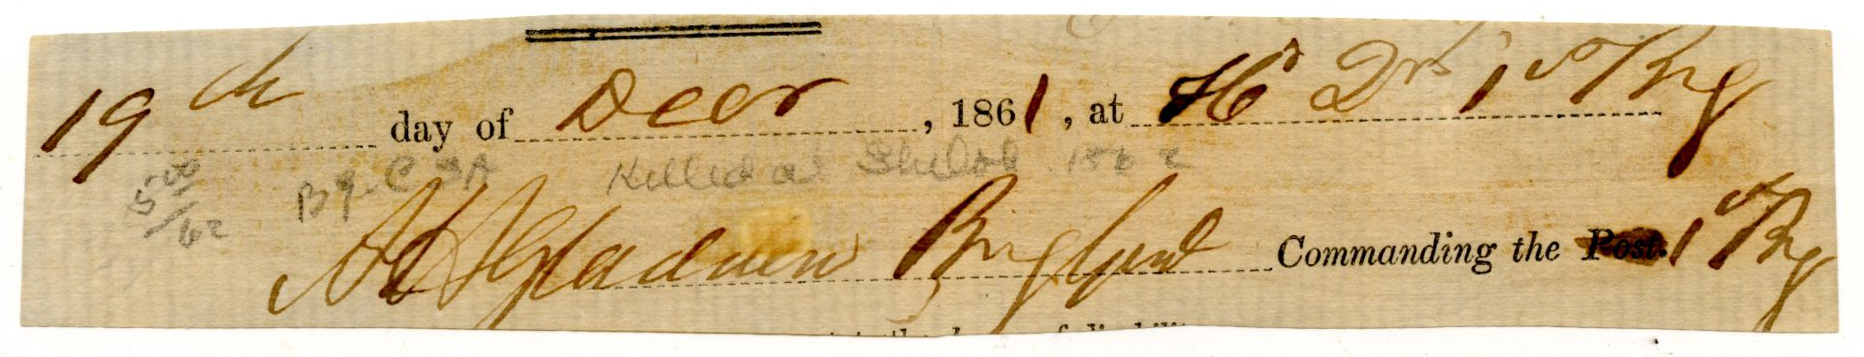 19th day of Decr, 1861, at Hd Qrs 1st Brig
5.00/62 Bg. CSA Killed at Shiloh 1862
A H Gladden Brig Genl Commanding the Post. 1st Brig